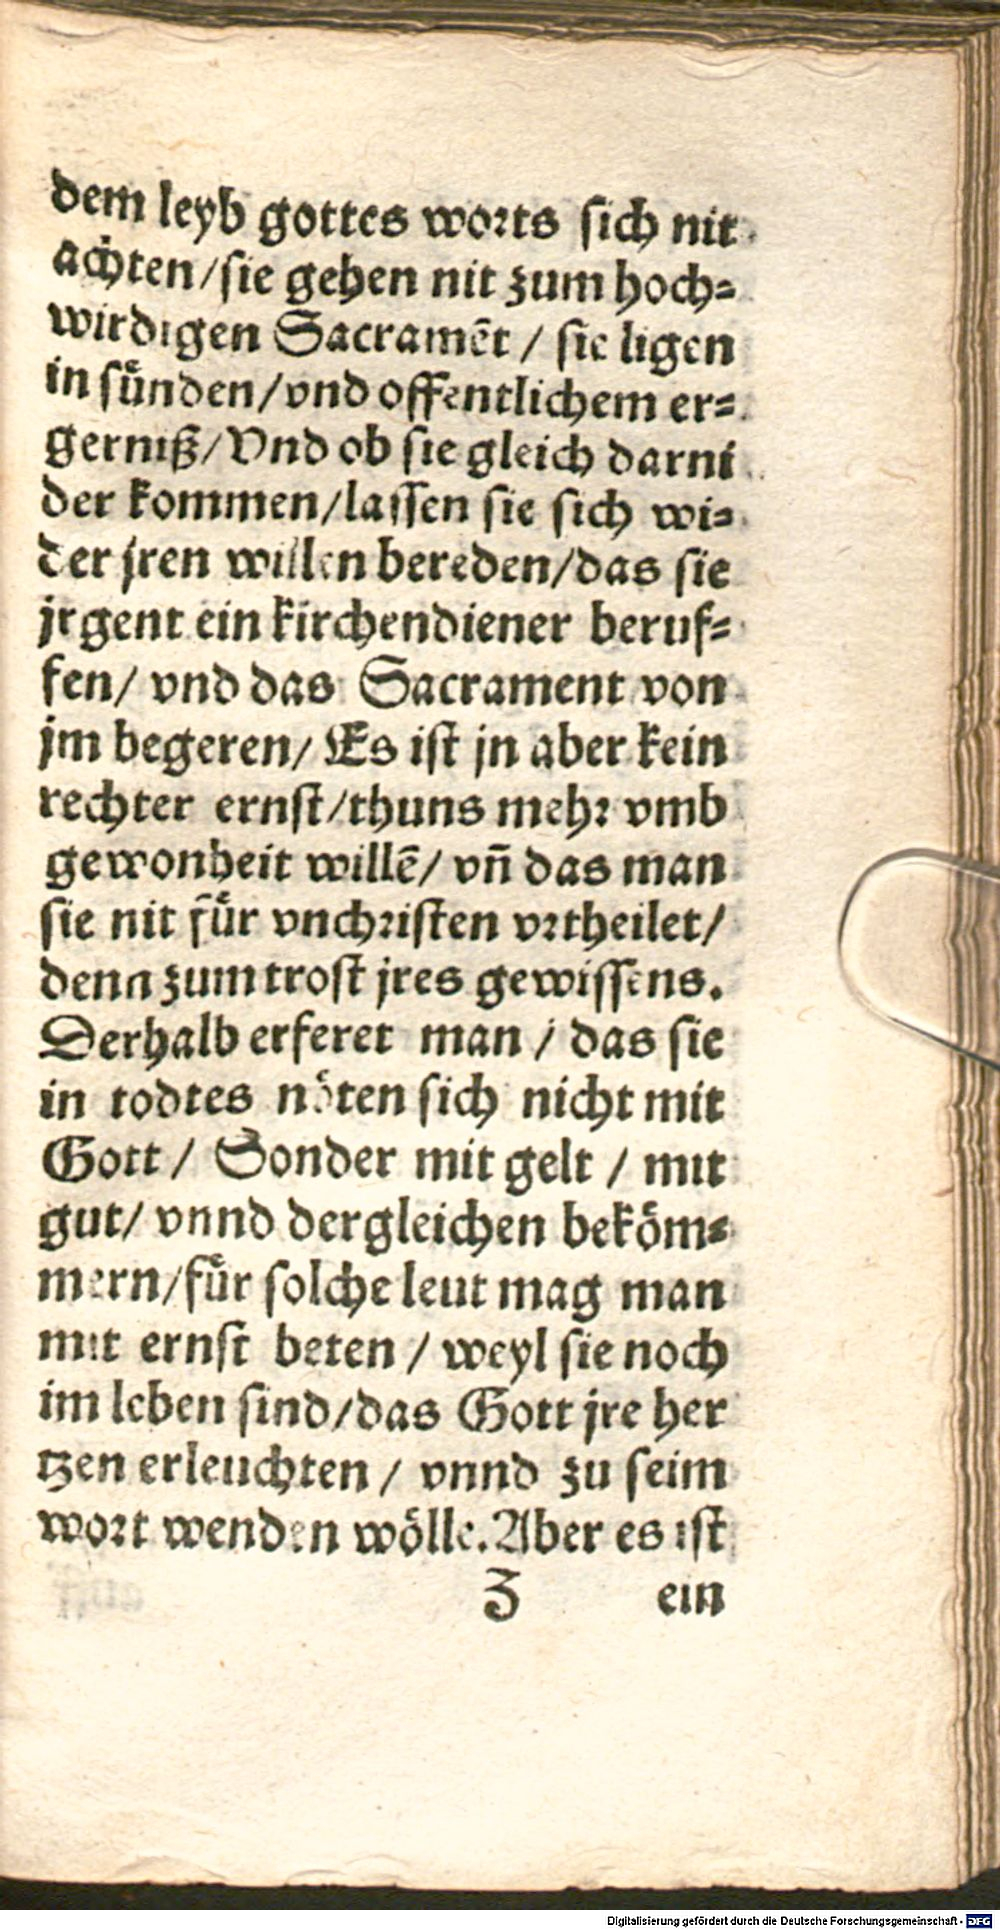 dem leyb gottes worts sich nit
achten/sie gehen nit zum hoch⸗
wirdigen Sacramēt / sie ligen
in sünden/vnd offentlichem er⸗
gerniß/Vnd ob sie gleich darni
der kommen/lassen sie sich wi⸗
der jren willen bereden/das sie
jrgent ein kirchendiener beruf⸗
fen/ vnd das Sacrament von
jm begeren/ Es ist jn aber kein
rechter ernst/thuns mehr vmb
gewonheit willē/ vñ das man
sie nit für vnchristen vrtheilet/
denn zum trost jres gewissens.
Derhalb erferet man / das sie
in todtes nöten sich nicht mit
Gott / Sonder mit gelt / mit
gut/ vnnd dergleichen beköm⸗
mern/für solche leut mag man
mit ernst beten / weyl sie noch
im leben sind/das Gott jre her
tzen erleuchten / vnnd zu seim
wort wenden wölle. Aber es ist
Z ein
Digitalisierung gefördert durch die Deutsche Forschungsgemeinschaft - DFG